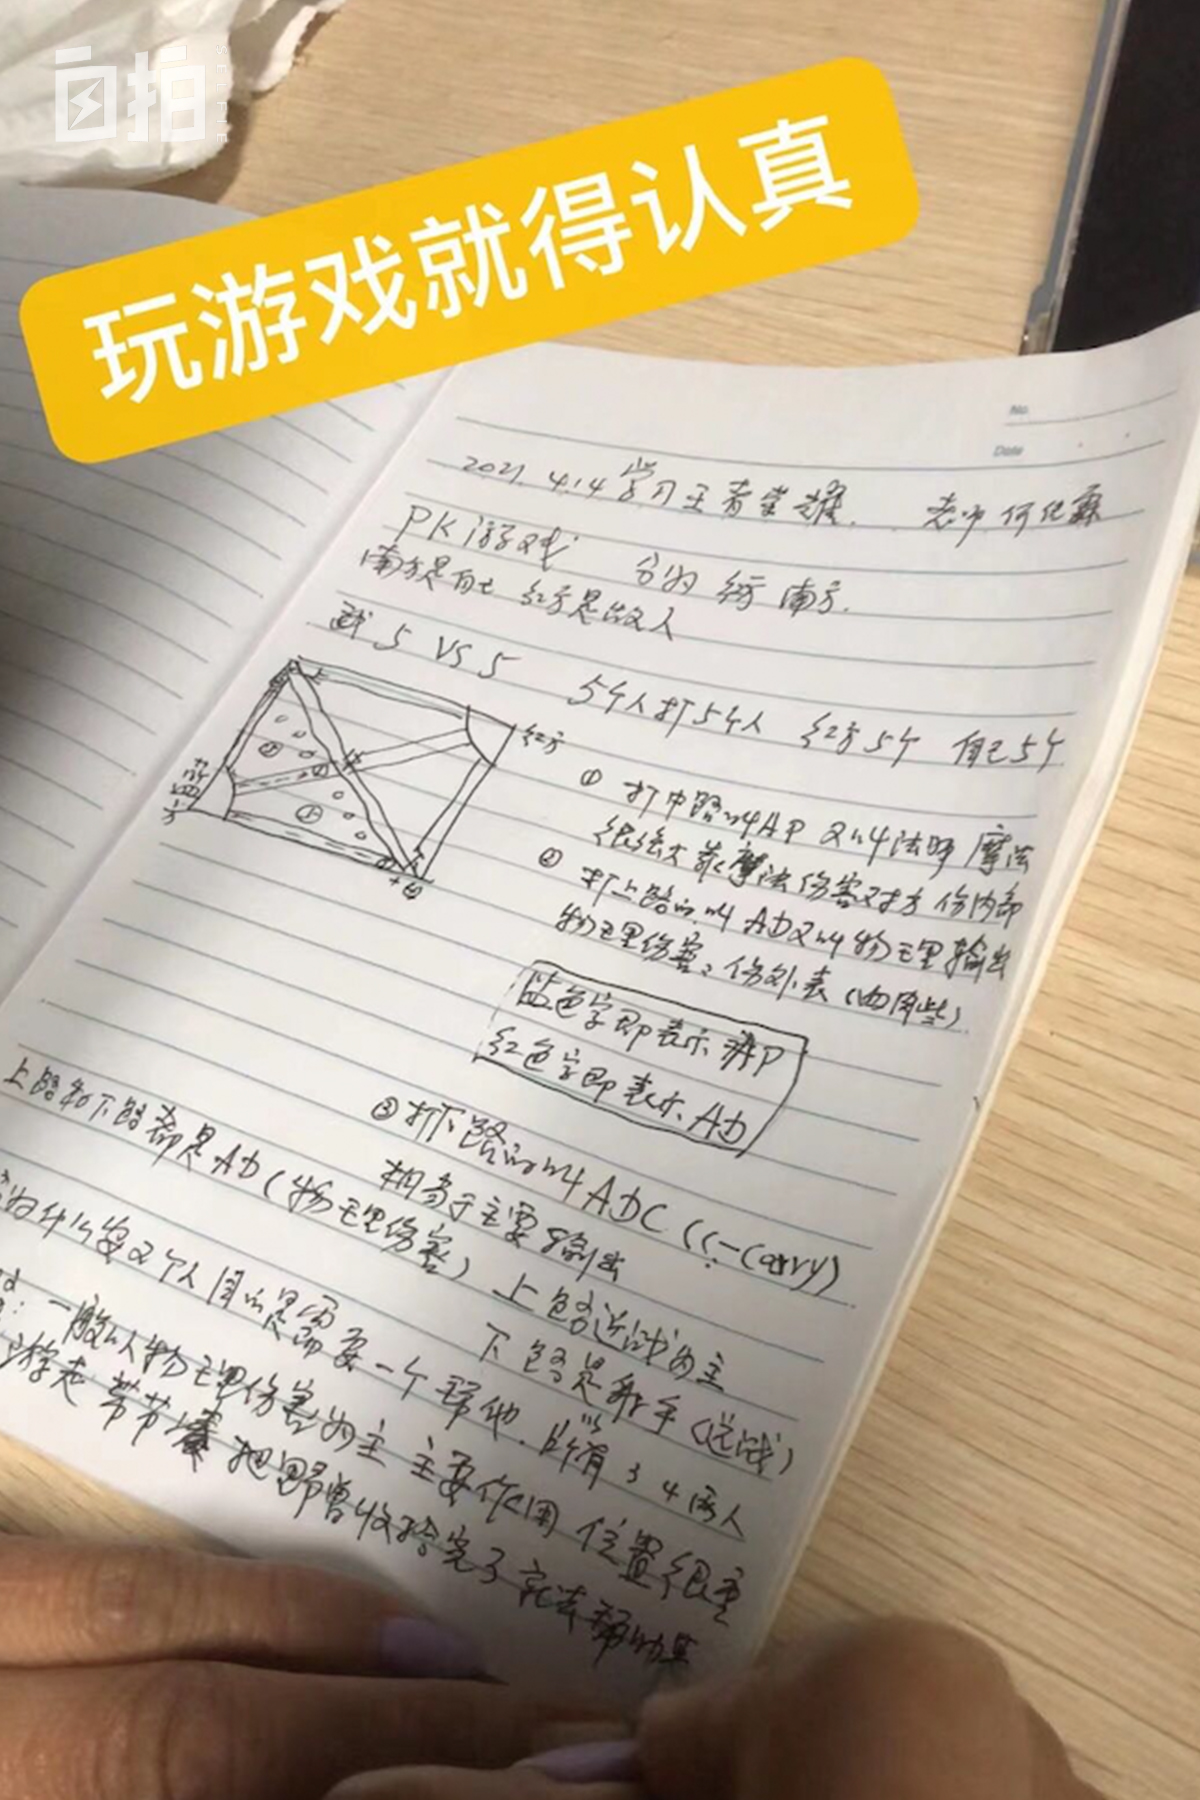 自拍
SELFIE
玩游戏就得认真
No.
Date
2021 4.14 学习王者荣耀. 老师 何
PK游戏 分为 红方 南方.
南方是自己 红方是敌人
5 VS 5 5个人打5个人 红方5个 自己5个
红方
① 打中路叫AP 又叫法师 摩法
很强大 靠摩法伤害对方 伤内部
② 打上路的叫 AD又叫物理输出
物理伤害, 伤外表(血肉些)
蓝色字即表示 AP
红色字即表示 AD
③ 打下路的叫ADC ((-Carry)
相当于主要输出
上路和下路都是AD(物理伤害) 上路近战为主
下路是射手(远战)
为什么要2个人 因的是需要一个帮他. 所以有 3 4 两人
一般以物理伤害为主 主要作用 位置很重
游走 带节奏 把野兽收拾完了 就去帮助其